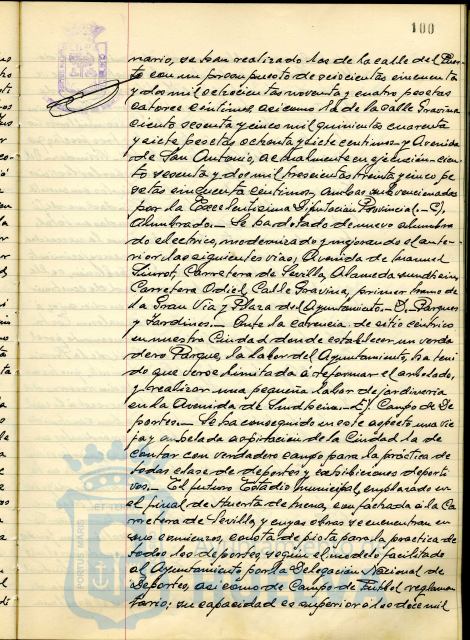 100
nario, se han realizado las de la calle del Puer-
to con un presupuesto de seiscientas cincuenta
y dos mil ochocientas noventa y cuatro pesetas
catorce céntimos, así como la de la calle Gravina
ciento sesenta y cinco mil quinientas cuarenta
y siete pesetas ochenta y siete céntimos y Avenida
de San Antonio, actualmente en ejecución cien-
to sesenta y dos mil trescientas treinta y cinco pe-
setas cincuenta céntimos, ambas subvencionadas
por la Excelentísima Diputación Provincial.- C),
Alumbrado.- Se ha dotado de nuevo alumbra
do eléctrico, modernizado y mejorando el ante-
rior las siguientes vías, Avenida de Manuel
Siurot, Carretera de Sevilla, Alameda Sundheim
Carretera Odiel, Calle Gravina, primer tramo de
la Gran Vía y Plaza del Ayuntamiento.- D). Parques
y Jardines.- Ante la carencia de sitio céntrico
en nuestra Ciudad donde establecer un verda
dero Parque, la labor del Ayuntamiento, ha teni
do que verse limitada a reformar el arbolado,
y realizar una pequeña labor de jardinería
en la Avenida de Sundheim.- E). Campo de De
portes.- Se ha conseguido en este aspecto una vie
ja y anhelada aspiración de la Ciudad la de
contar con verdadero campo para la práctica de
todas clase de deportes y exhibiciones deporti
vas.- El futuro Estadio municipal, emplazado en
el final de Huerta de Mena, con fachada a la Ca
rretera de Sevilla y cuyas obras se encuentran en
sus comienzos, consta de pista para la practica de
todos los deportes, según el modelo facilitado
al Ayuntamiento por la Delegación Nacional de
Deportes, así como de Campo de Futbol reglamen
tario; su capacidad es superior a los doce mil
PORTUS MARIS